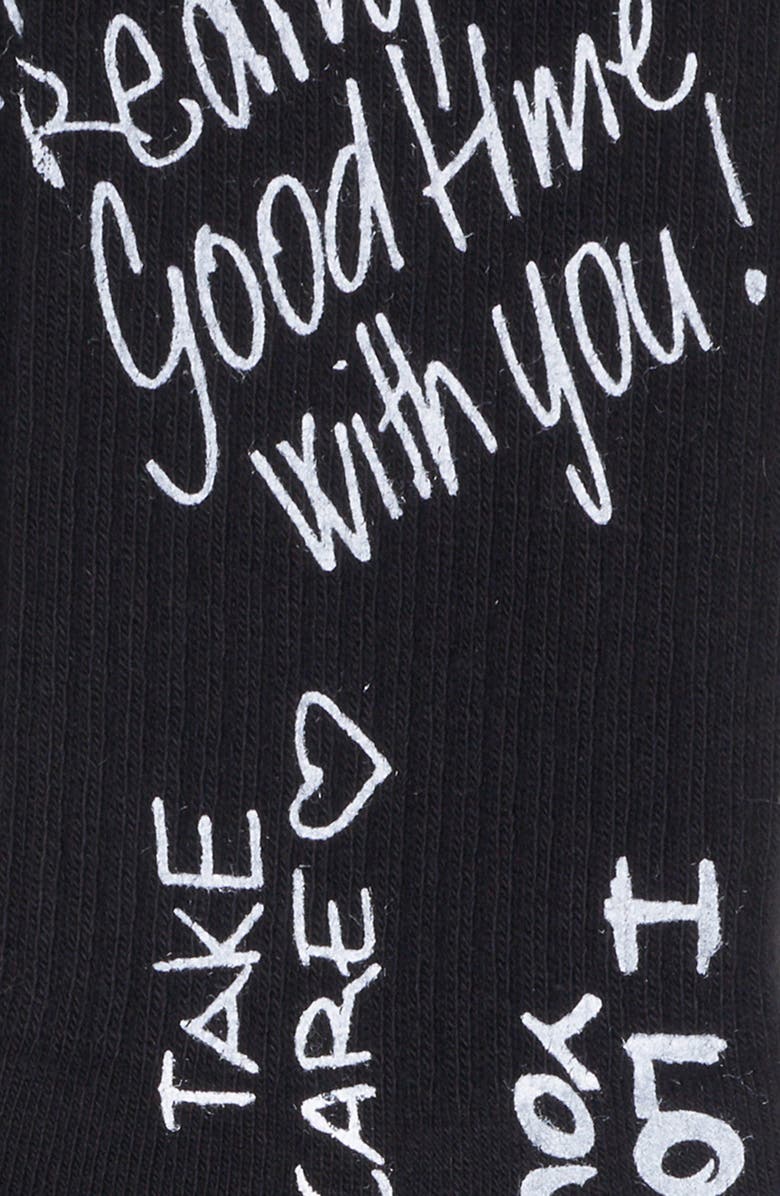 Really
Good time
with you!
TAKE
CARE ♡
I LO
YOU